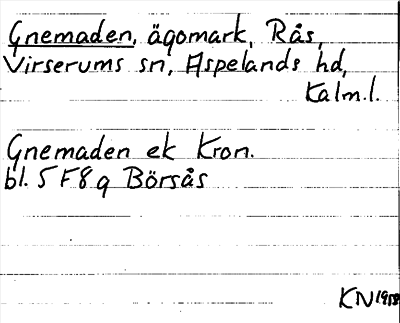 Gnemaden, ägomark, Rås,
Virserums sn, Aspelands hd,
Kalm.l.
Gnemaden ek Kron.
bl. 5 F8g Börsås
KN